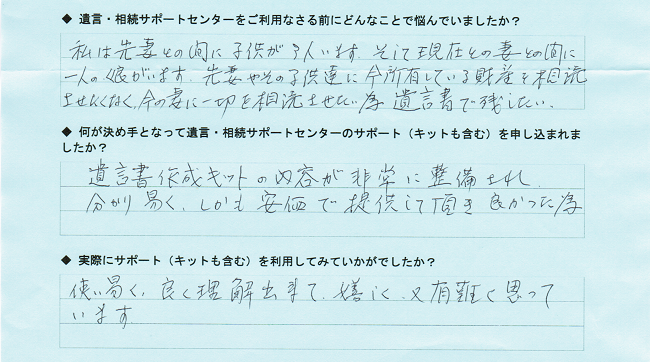 ◆ 遺言・相続サポートセンターをご利用なさる前にどんなことで悩んでいましたか？
私は先妻との間に子供が了人います。そして現在との妻との間に
一人の娘がいます。先妻やその子供達に今所有している財産を相続
させたくなく、今の妻に一切を相続させたい為 遺言書で残したい。
◆ 何が決め手となって遺言・相続サポートセンターのサポート（キットも含む）を申し込まれま
したか？
遺言書作成キットの内容が非常に整備され、
分かり易く、しかも安価で提供して頂き良かった為
◆ 実際にサポート（キットも含む）を利用してみていかがでしたか？
使い易く、良く理解出来て、嬉しく、又有難く思って
います